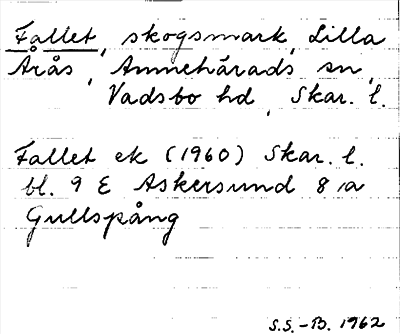 Fallet, skogsmark, Lilla
Årås, Amnehärads sn,
Vadsbo hd, Skar. l.
Fallet ek (1960) Skar. l.
bl. 9 E Askersund 8 a
Gullspång
S.S.-B. 1962